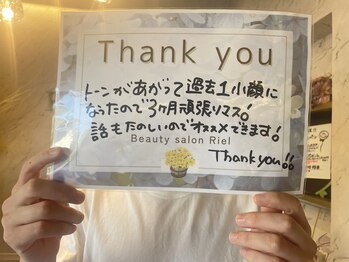 Thank you
トーンがあがって過去1小顔に
なったので3ヶ月頑張りマス!
話もたのしいのでオススメできます!
Beauty salon Riel
Thank you!!